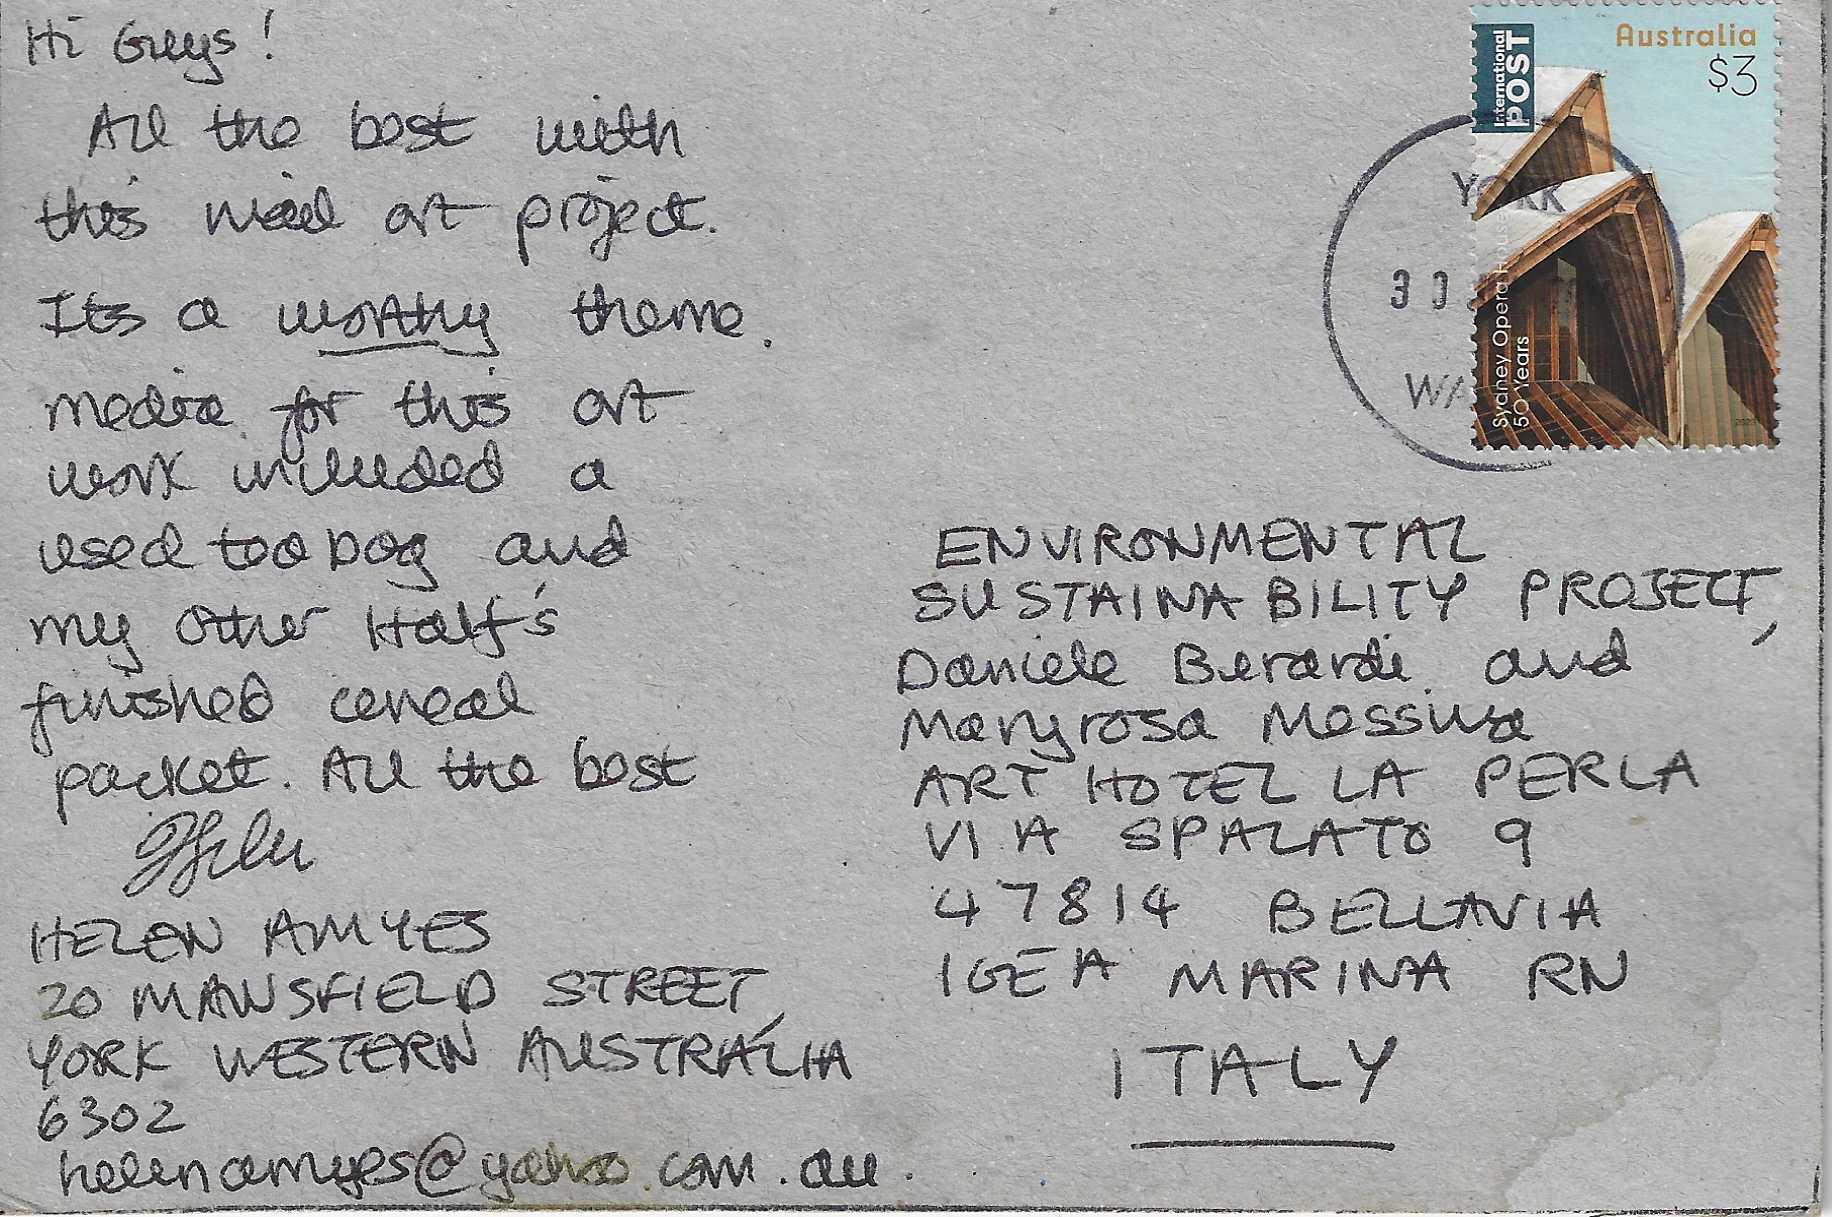 Hi Guys!
All the best with
this mail art project.
Its a worthy theme.
media for this art
work included a
used tea bag and
my other Half's
finished cereal
packet. All the best
Helen
HELEN AMYES
20 MANSFIELD STREET,
YORK WESTERN AUSTRALIA
6302
helenamyes@yahoo.com.au.
International
POST
Australia
$3
Sydney Opera House
50 Years
2023
YORK
WA
ENVIRONMENTAL
SUSTAINABILITY PROJECT,
Daniele Berardi and
Maryrosa Messina
ART HOTEL LA PERLA
VIA SPALATO 9
47814 BELLAVIA
IGEA MARINA RN
ITALY